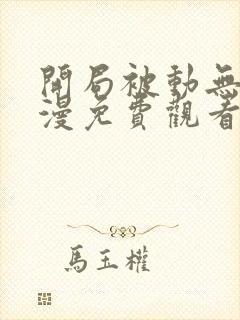 開局被動無
漫免費觀看
馬玉權